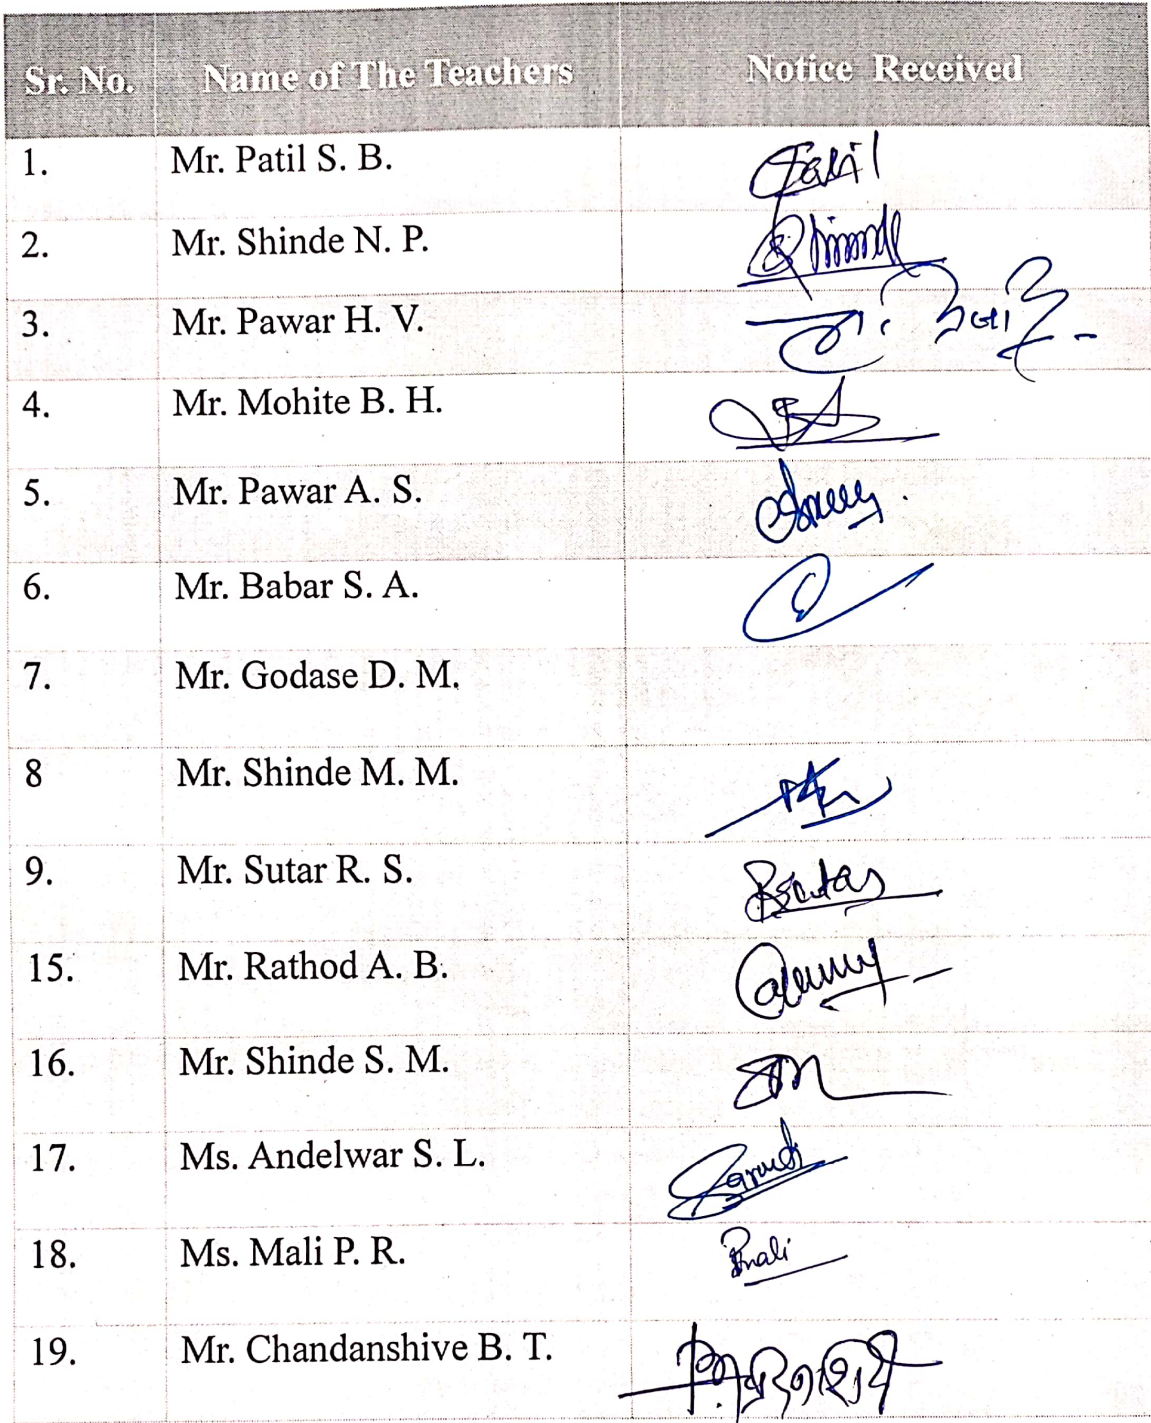 Sr. No. Name of The Teachers Notice Received
1. Mr. Patil S. B. Patil
2. Mr. Shinde N. P. Shinde
3. Mr. Pawar H. V.
4. Mr. Mohite B. H.
5. Mr. Pawar A. S.
6. Mr. Babar S. A.
7. Mr. Godase D. M.
8 Mr. Shinde M. M.
9. Mr. Sutar R. S. RSutar
15. Mr. Rathod A. B.
16. Mr. Shinde S. M.
17. Ms. Andelwar S. L.
18. Ms. Mali P. R. Pmali
19. Mr. Chandanshive B. T.